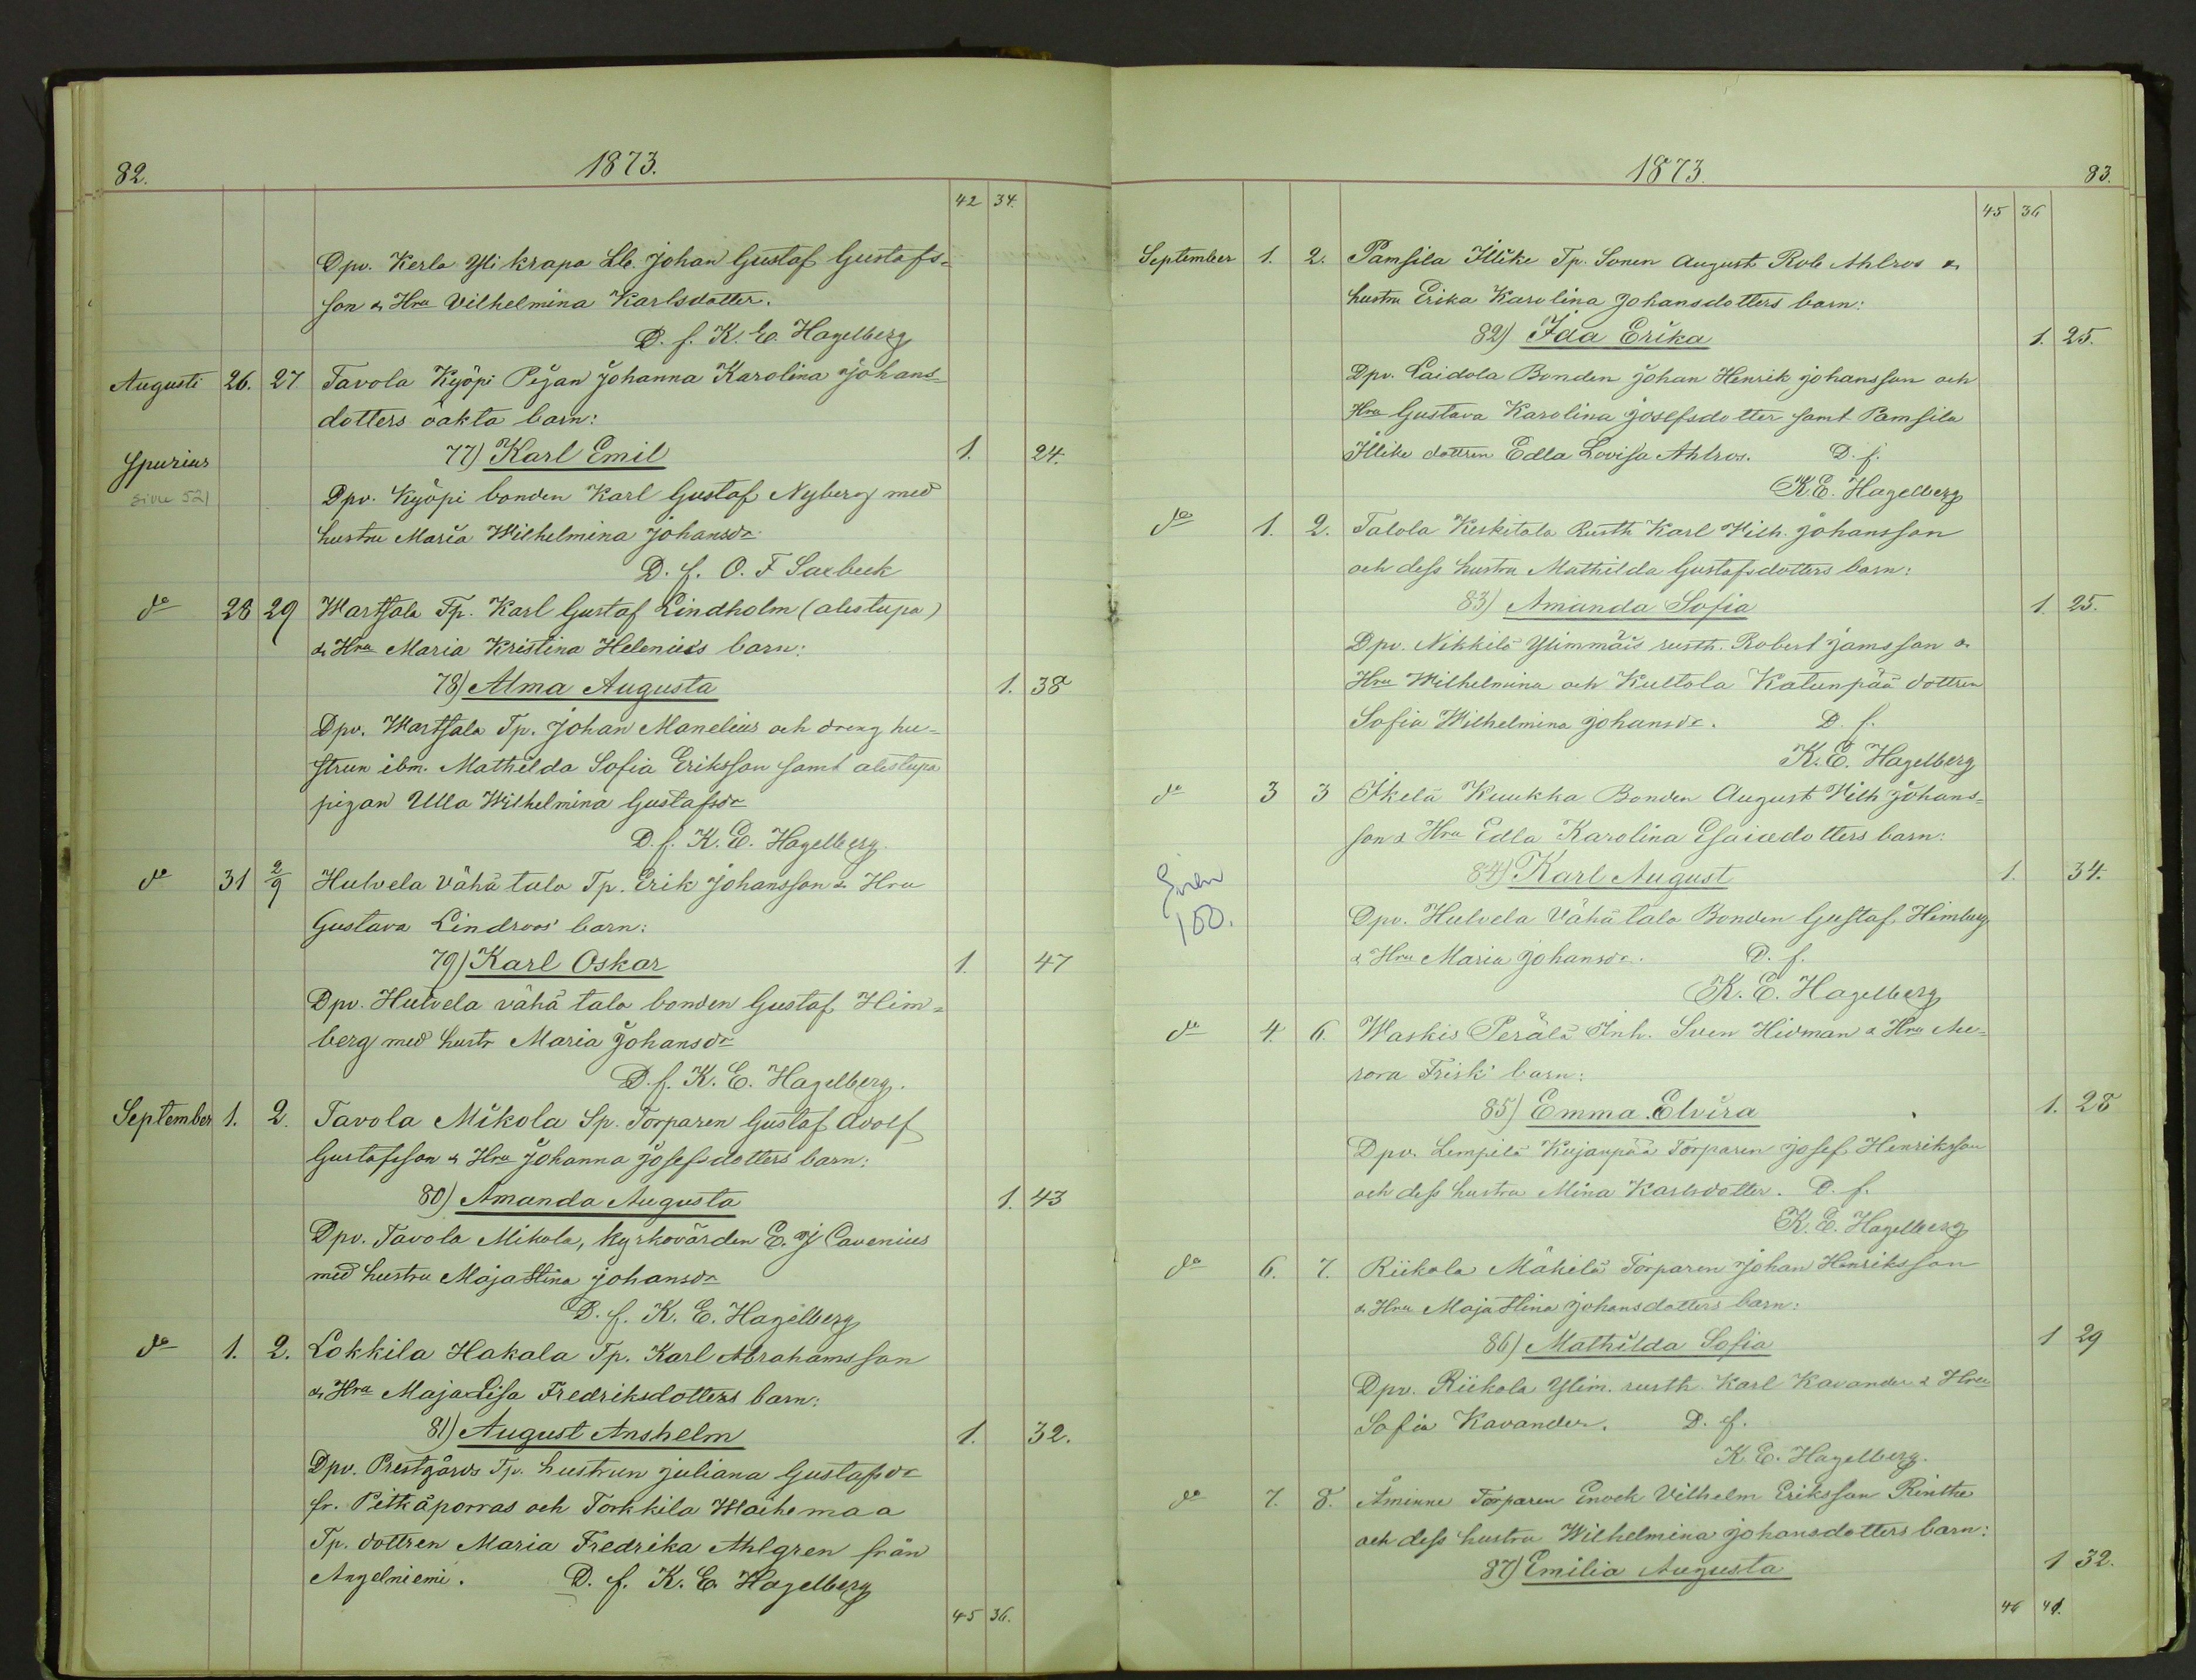 82.
1873.
42 34.
Dpv. Kerla Yli krapa Lb. Johan Gustaf Gustafs=
son & Hru Vilhelmina Karlsdotter.
D. f. K. E. Hagelberg
Augusti 26. 27. Tavola Kyöpi Pigan Johanna Karolina Johans=
dotters oäkta barn:
Spurius 77) Karl Emil 1. 24.
sivu 521
Dpv. Kyöpi bonden Karl Gustaf Nyberg med
hustru Maria Wilhelmina Johansdr
D. f. O. F. Saxbeck
do 28 29 Wartsala Tp. Karl Gustaf Lindholm (alestupa)
& Hru Maria Kristina Helenius barn:
78) Alma Augusta 1. 38
Dpv. Wartsala Tp. Johan Manelius och dreng hu=
strun ibm. Mathilda Sofia Eriksson samt alestupa
pigan Ulla Wilhelmina Gustafsdr
D. f. K. E. Hagelberg.
do 31 2/9 Hulvela Vähä talo Tp. Erik Johansson & Hru
Gustava Lindroos' barn:
79) Karl Oskar 1. 47
Dpv. Hulvela vähä talo bonden Gustaf Him=
berg med hustr Maria Johansdr
D. f. K. E. Hagelberg.
September 1. 2. Tavola Mikola Sp. Torparen Gustaf Adolf
Gustafsson & Hru Johanna Josefsdotters barn:
80) Amanda Augusta 1. 43
Dpv. Tavola Mikola, kyrkovärden E. J Cavenius
med hustru Maja Stina Johansdr
D. f. K. E. Hagelberg
do 1. 2. Lokkila Hakala Tp. Karl Abrahamsson
& Hru Maja Lisa Fredriksdotters barn:
81) August Anshelm 1. 32.
Dpv. Prestgårds Tp. hustrun Juliana Gustafsdr
fr. Pitkäporras och Torkkila Waihemaa
Tp. dottren Maria Fredrika Ahlgren från
Angelniemi. D. f. K. E. Hagelberg
45 36.
1873.
83.
45 36
September 1. 2. Pamsila Illike Tp. Sonen August Rob Ahlros &
hustru Erika Karolina Johansdotters barn:
82) Ida Erika 1. 25.
Dpv. Laidola Bonden Johan Henrik Johansson och
Hru Gustava Karolina Josefsdotter samt Pamsila
Illike dottren Edla Lovisa Ahlros. D. f.
K. E. Hagelberg
do 1. 2. Talola Keskitalo Rusth Karl Wilh. Johansson
och dess hustru Mathilda Gustafsdotters barn:
83) Amanda Sofia 1. 25.
Dpv. Nikkilä Ylimmäis rusth. Robert Jamsson &
Hru Wilhelmina och Kultola Katunpää dottren
Sofia Wilhelmina Johansdr. D. f.
K. E. Hagelberg
do 3 3 Ikelä Kuukka Bonden August Wilh Johans=
son & Hru Edla Karolina Esaiedotters barn:
84) Karl August 1. 34.
100.
Dpv. Hulvela Vähä talo Bonden Gustaf Himberg
& Hru Maria Johansdr. D. f.
K. E. Hagelberg
do 4. 6. Waskis Perälä Inh. Sven Hidman & Hru Au=
rora Frisk' barn:
85) Emma Elvira 1. 28
Dpv. Lempilä Kujanpää Torparen Josef Henriksson
och dess hustru Mina Karlsdotter. D. f.
K. E. Hagelberg
do 6. 7. Riikola Mäkilä Torparen Johan Henriksson
& Hru Maja Stina Johansdotters barn:
86) Mathilda Sofia 1 29
Dpv. Riikola Ylim. rusth Karl Kavander & Hru
Sofia Kavander. D. f.
K. E. Hagelberg.
do 7. 8. Åminne Torparen Enock Vilhelm Eriksson Rinthe
och dess hustru Wilhelmina Johansdotters barn:
87) Emilia Augusta 1 32.
46 41.